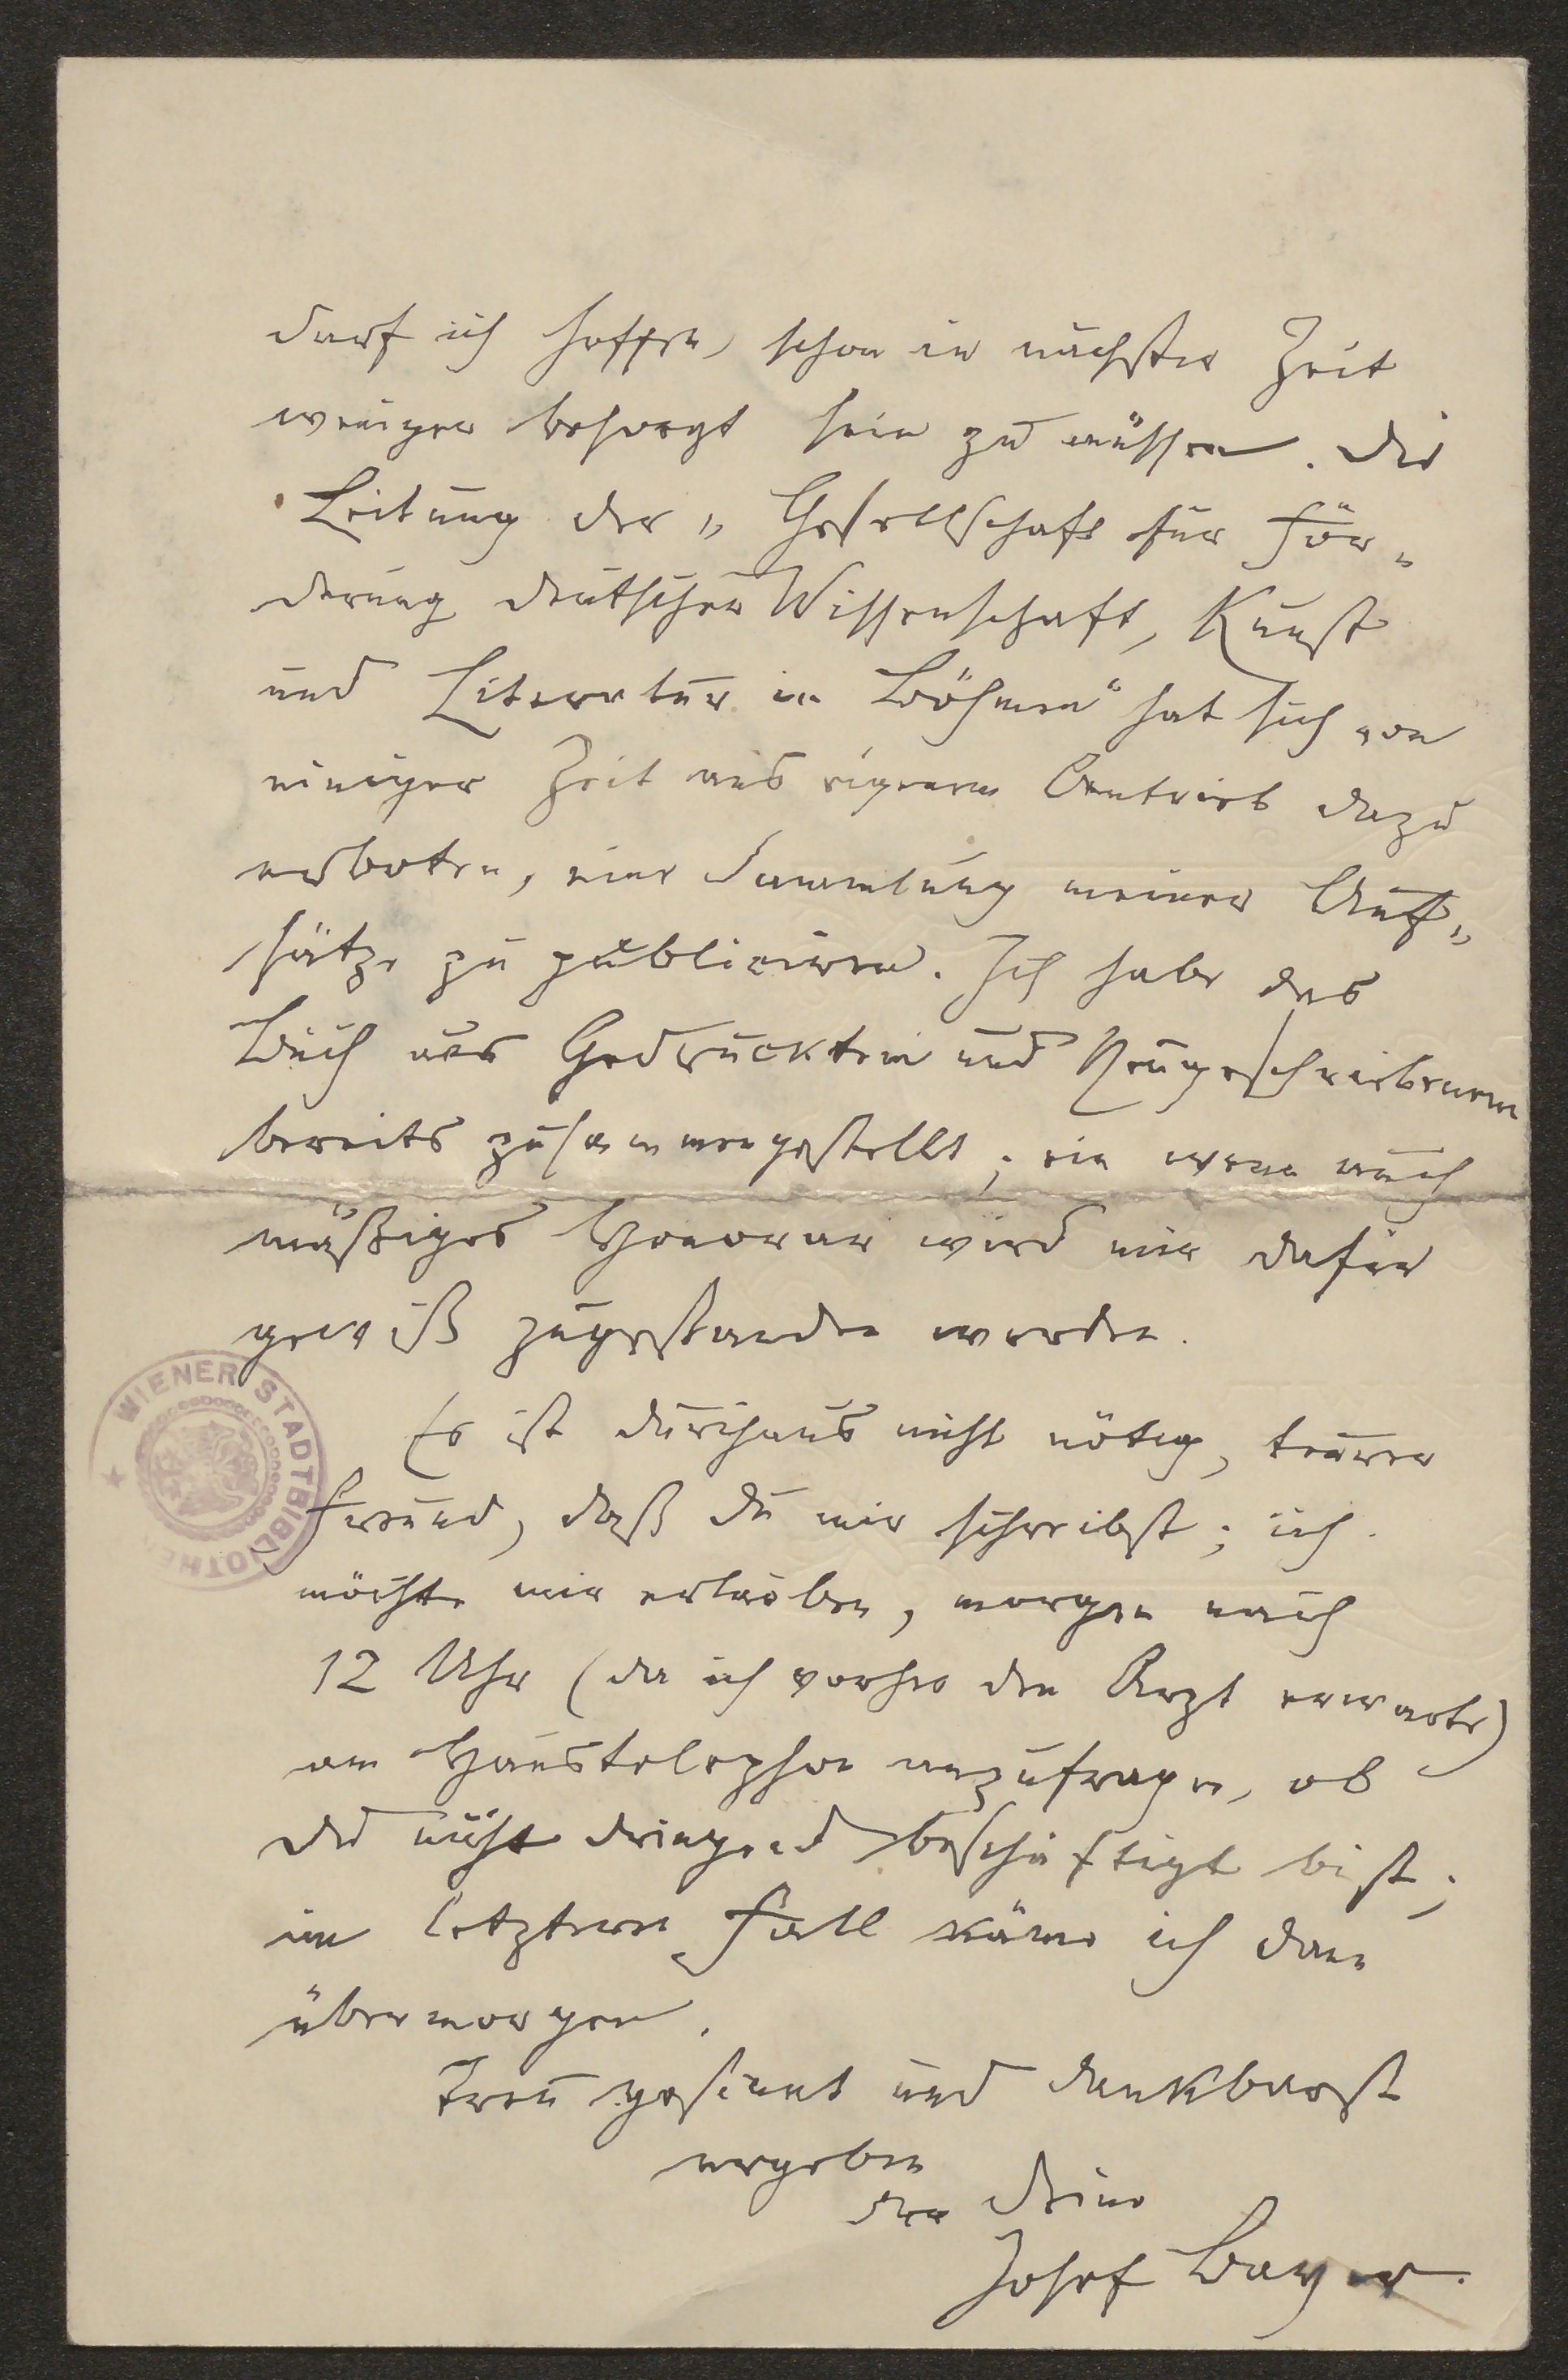 darf ich hoffen, schon in nächster Zeit
weniger besorgt sein zu müssen. Die
Leitung der „Gesellschaft für För-
derung deutscher Wissenschaft, Kunst
und Literatur in Böhmen“ hat sich vor
einiger Zeit aus eigenem Antrieb dazu
erboten, eine Sammlung meiner Auf-
sätze zu publiciren. Ich habe das
Buch aus Gedrucktem und Neugeschriebenem
bereits zusammengestellt; ein wenn auch
mäßiges Honorar wird mir dafür
gewiß zugestanden werden.
Es ist durchaus nicht nötig, teurer
Freund, daß Du mir schreibst; ich
möchte mir erlauben, morgen nach
12 Uhr (da ich vorher den Arzt erwarte)
am Haustelephon anzufragen, ob
Du nicht dringend beschäftigt bist;
im letzteren Fall käme ich dann
übermorgen.
Treu gesinnt und dankbarst
ergeben
der Deine
Josef Bayer.
WIENER STADTBIBLIOTHEK